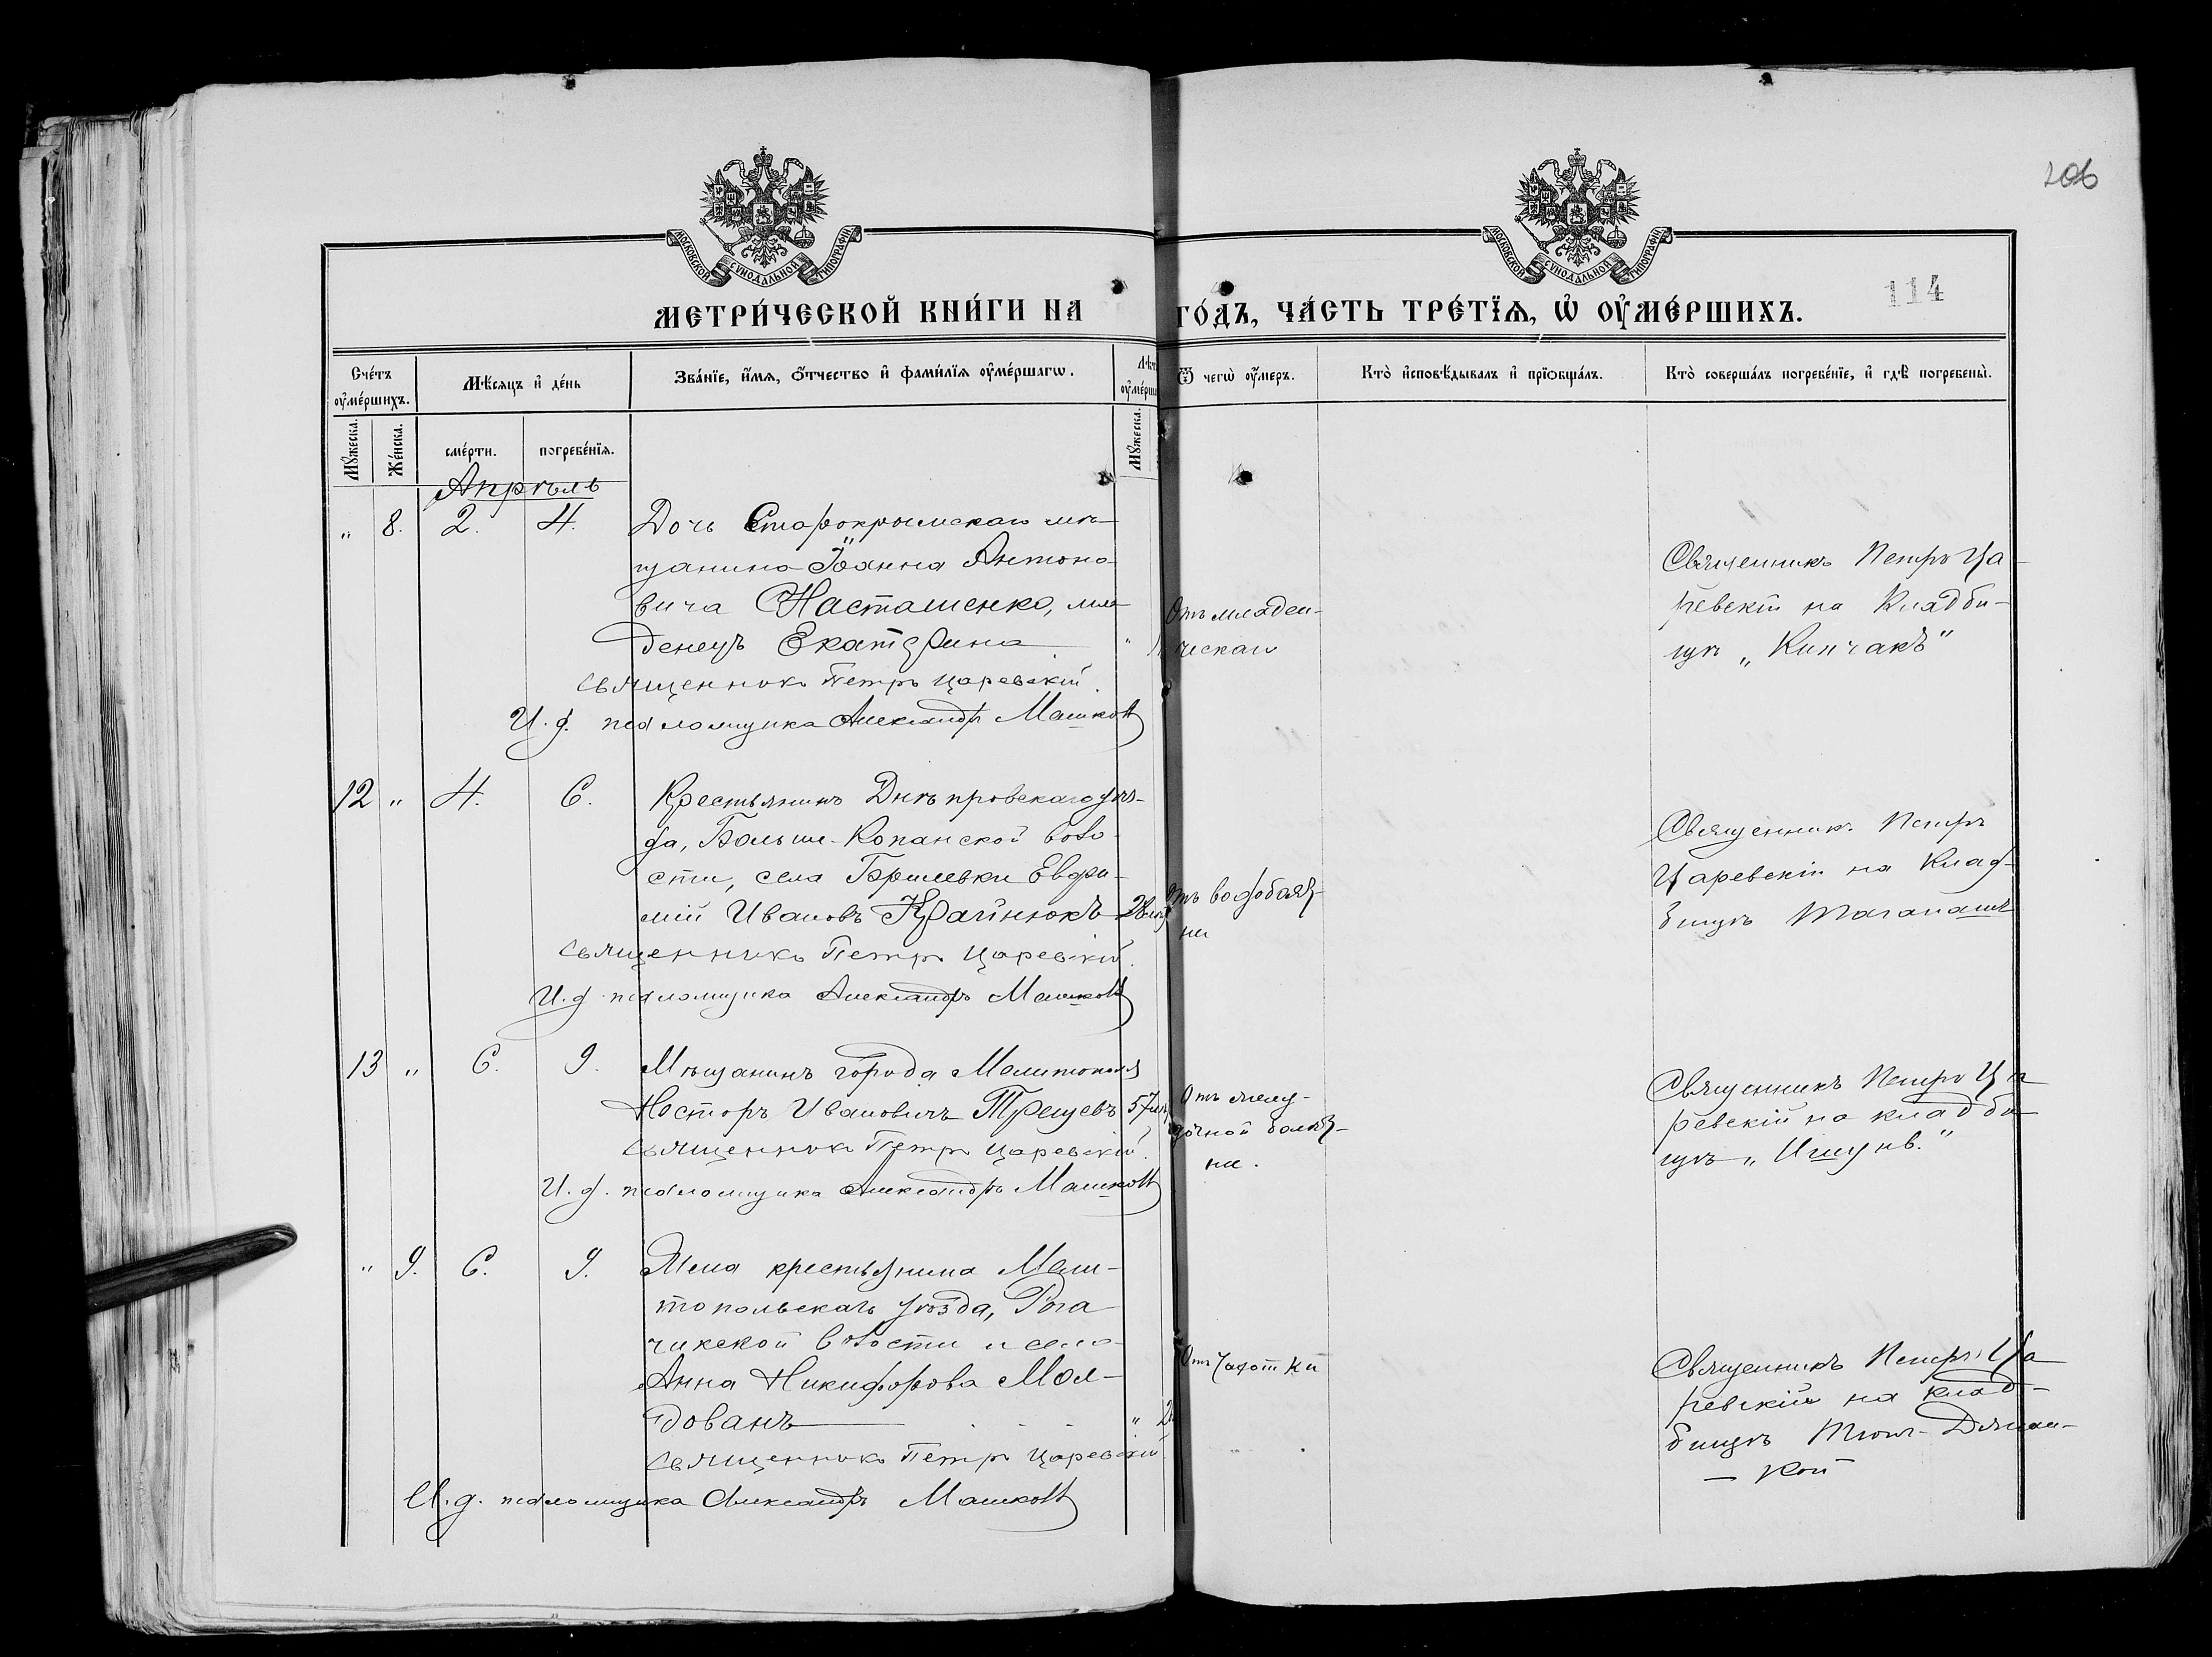 206
114
МОСКОВСКОЙ СУНОДАЛЬНОЙ ТИПОГРАФІИ
МОСКОВСКОЙ СУНОДАЛЬНОЙ ТИПОГРАФІИ
МЕТРИ́ЧЕСКОЙ КНИ́ГИ НА ГО́ДЪ, ЧА́СТЬ ТРЕ́ТЇѦ, Ѡ҆ ОУ҆МЕ́РШИХЪ.
Сче́тъ оу҆ме́ршихъ.
Мѣсѧцъ и҆ де́нь
Зва́нїе, и҆́мѧ, ѻ҆́тчество и҆ фами́лїѧ оу҆ме́ршагѡ.
Ѿ чегѡ̀ оу҆́меръ.
Кто̀ и҆сповѣ́дывалъ и҆ прїѡбща́лъ.
Кто̀ соверша́лъ погребе́нїе, и҆ гдѣ̀ погребены̀.
Мꙋ́жеска.
Же́нска.
сме́рти.
погребе́нїѧ.
Мꙋ́жеска.
Апрѣль
„ 8. 2. 4. Дочь Старокрымскаго мѣ-
щанина Іоанна Антоно-
вича Насташенко, мла-
денецъ Екатерина
Священникъ Петръ Царевскій.
И. д. псаломщика Александръ Машковъ
Отъ младен-
ческаго
Священникъ Петръ Ца-
ревскій на кладби-
щѣ „Кипчакъ"
12 „ 4. 6. Крестьянинъ Днѣпровскаго уѣз-
да, Больше-Копанской воло-
сти, села Евфи-
мій Ивановъ Крайнюкъ
Священникъ Петръ Царевскій.
И. д. псаломщика Александръ Машковъ
отъ водобояз-
ни
Священникъ Петръ
Царевскій на клад-
бищѣ Таганашъ
13 „ 6. 9. Мѣщанинъ города Мелитополя
Несторъ Ивановичъ 57
Священникъ Петръ Царевскій.
И. д. псаломщика Александръ Машковъ
Отъ желу-
дочной болѣз-
ни.
Священникъ Петръ Ца-
ревскій на кладби-
щѣ
„ 9. 6. 9. Жена крестьянина Мели-
топольскаго уѣзда, Рога-
чикской волости и села
Анна Никифорова Мол-
дованъ
Священникъ Петръ Царевскій.
И. д. псаломщика Александръ Машковъ
Отъ чахотки
Священникъ Петръ Ца-
ревскій на клад-
бищѣ